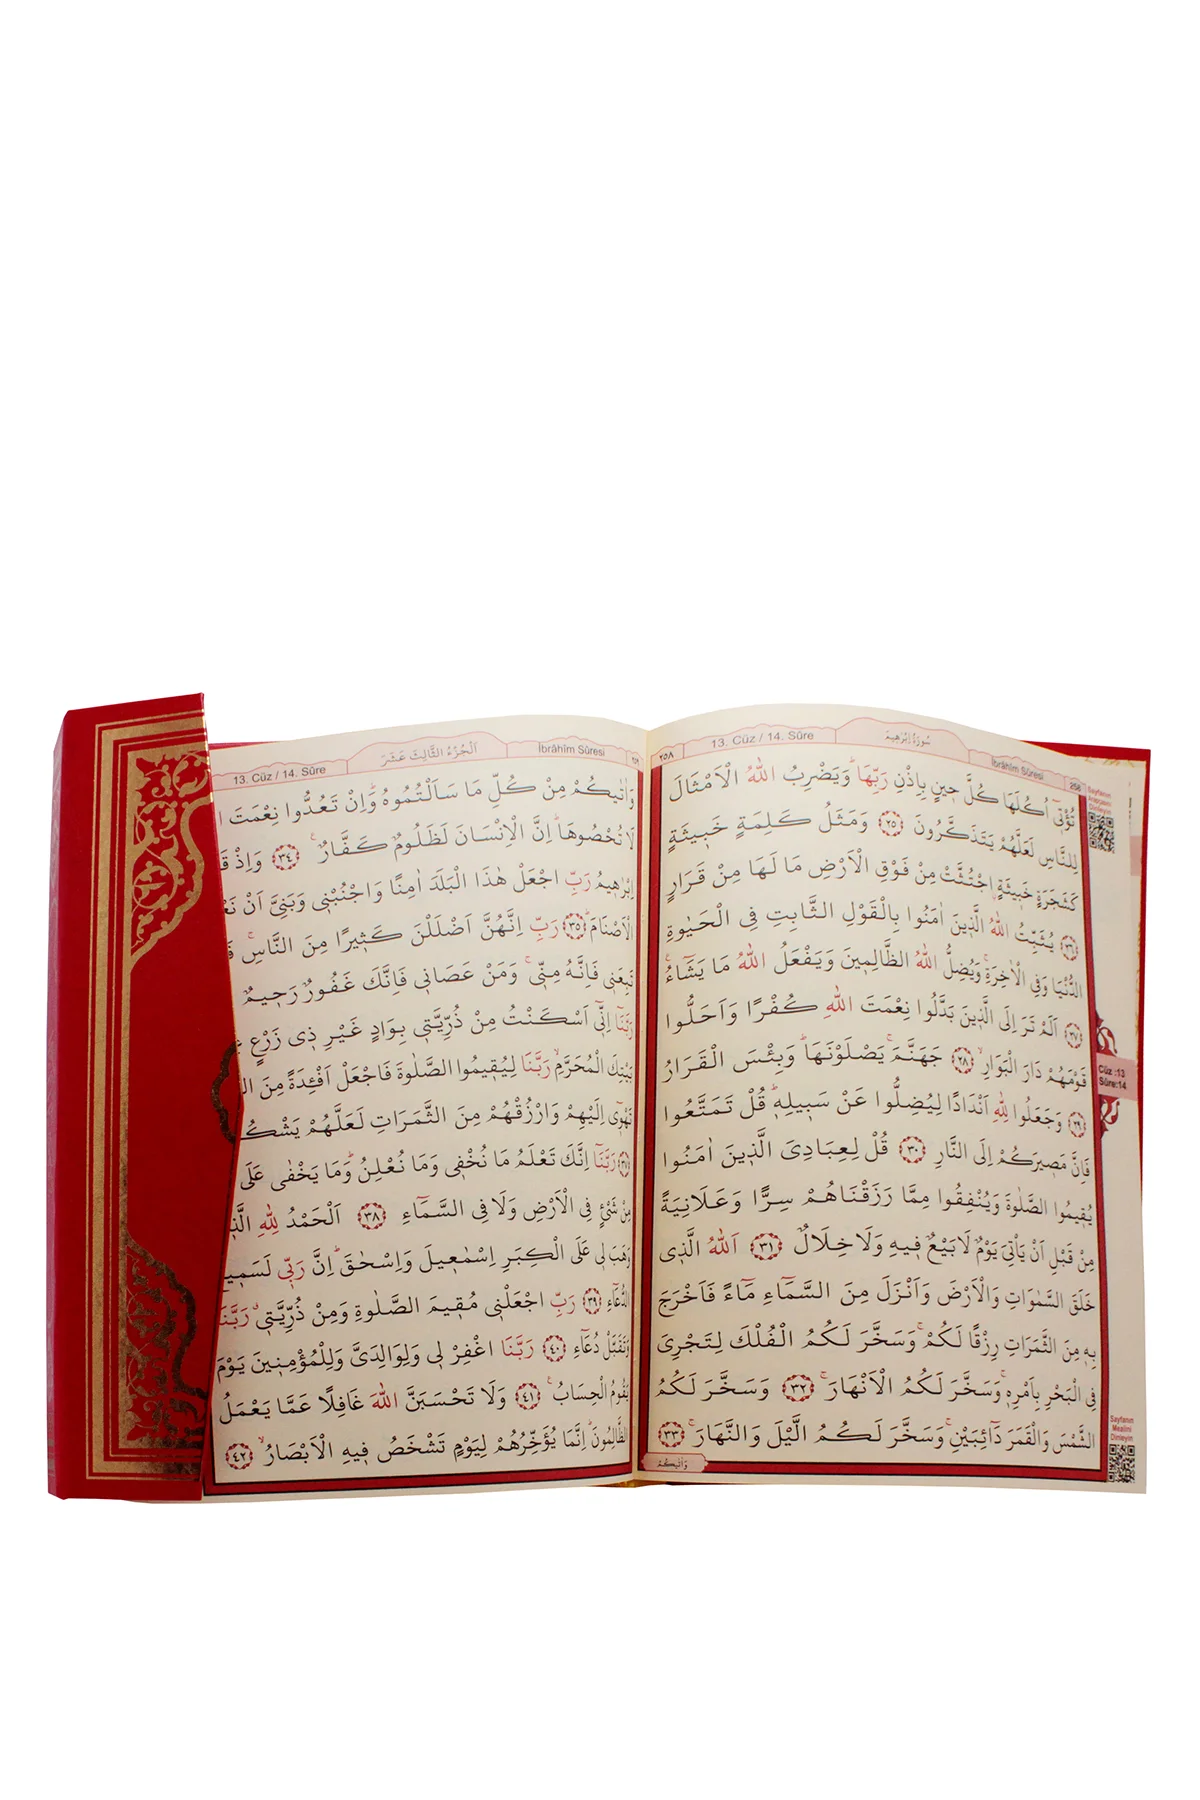 ٢٥٨
13. Cüz / 14. Sûre
سُورَةُ اِبْرٰهِيمَ
İbrâhîm Sûresi
258
تُؤْتٖٓي اُكُلَهَا كُلَّ حٖينٍ بِاِذْنِ رَبِّهَاۜ وَيَضْرِبُ اللّٰهُ الْاَمْثَالَ
لِلنَّاسِ لَعَلَّهُمْ يَتَذَكَّرُونَ ﴿٢٥﴾ وَمَثَلُ كَلِمَةٍ خَبٖيثَةٍ
كَشَجَرَةٍ خَبٖيثَةٍۨ اجْتُثَّتْ مِنْ فَوْقِ الْاَرْضِ مَا لَهَا مِنْ قَرَارٍ
﴿٢٦﴾ يُثَبِّتُ اللّٰهُ الَّذٖينَ اٰمَنُوا بِالْقَوْلِ الثَّابِتِ فِي الْحَيٰوةِ
الدُّنْيَا وَفِي الْاٰخِرَةِۚ وَيُضِلُّ اللّٰهُ الظَّالِمٖينَ وَيَفْعَلُ اللّٰهُ مَا يَشَٓاءُ۟
﴿٢٧﴾ اَلَمْ تَرَ اِلَى الَّذٖينَ بَدَّلُوا نِعْمَتَ اللّٰهِ كُفْرًا وَاَحَلُّوا
قَوْمَهُمْ دَارَ الْبَوَارِۙ ﴿٢٨﴾ جَهَنَّمَۚ يَصْلَوْنَهَاۜ وَبِئْسَ الْقَرَارُ
﴿٢٩﴾ وَجَعَلُوا لِلّٰهِ اَنْدَادًا لِيُضِلُّوا عَنْ سَبٖيلِهٖۜ قُلْ تَمَتَّعُوا
فَاِنَّ مَصٖيرَكُمْ اِلَى النَّارِ ﴿٣٠﴾ قُلْ لِعِبَادِيَ الَّذٖينَ اٰمَنُوا
يُقٖيمُوا الصَّلٰوةَ وَيُنْفِقُوا مِمَّا رَزَقْنَاهُمْ سِرًّا وَعَلَانِيَةً
مِنْ قَبْلِ اَنْ يَأْتِيَ يَوْمٌ لَا بَيْعٌ فٖيهِ وَلَا خِلَالٌ ﴿٣١﴾ اَللّٰهُ الَّذٖي
خَلَقَ السَّمٰوَاتِ وَالْاَرْضَ وَاَنْزَلَ مِنَ السَّمَٓاءِ مَٓاءً فَاَخْرَجَ
بِهٖ مِنَ الثَّمَرَاتِ رِزْقًا لَكُمْۚ وَسَخَّرَ لَكُمُ الْفُلْكَ لِتَجْرِيَ
فِي الْبَحْرِ بِاَمْرِهٖۚ وَسَخَّرَ لَكُمُ الْاَنْهَارَۚ ﴿٣٢﴾ وَسَخَّرَ لَكُمُ
الشَّمْسَ وَالْقَمَرَ دَٓائِبَيْنِۚ وَسَخَّرَ لَكُمُ الَّيْلَ وَالنَّهَارَۚ ﴿٣٣﴾
وَاٰتٰيكُمْ
Sayfanın
Arapçasını
Dinleyin
Cüz :13
Sûre:14
Sayfanın
Mealini
Dinleyin
13. Cüz / 14. Sûre
اَلْجُزْءُ الثَّالِثَ عَشَرَ
İbrâhîm Sûresi
وَاٰتٰيكُمْ مِنْ كُلِّ مَا سَاَلْتُمُوهُۜ وَاِنْ تَعُدُّوا نِعْمَتَ
لَا تُحْصُوهَاۜ اِنَّ الْاِنْسَانَ لَظَلُومٌ كَفَّارٌ۟ ﴿٣٤﴾ وَاِذْ
اِبْرٰهٖيمُ رَبِّ اجْعَلْ هٰذَا الْبَلَدَ اٰمِنًا وَاجْنُبْنٖي وَبَنِيَّ اَنْ
الْاَصْنَامَۜ ﴿٣٥﴾ رَبِّ اِنَّهُنَّ اَضْلَلْنَ كَثٖيرًا مِنَ النَّاسِۚ
تَبِعَنٖي فَاِنَّهُ مِنّٖيۚ وَمَنْ عَصَانٖي فَاِنَّكَ غَفُورٌ رَحٖيمٌ
رَبَّنَٓا اِنّٖٓي اَسْكَنْتُ مِنْ ذُرِّيَّتٖي بِوَادٍ غَيْرِ ذٖي زَرْعٍ
بَيْتِكَ الْمُحَرَّمِۙ رَبَّنَا لِيُقٖيمُوا الصَّلٰوةَ فَاجْعَلْ اَفْـِٔدَةً مِنَ
تَهْوٖٓي اِلَيْهِمْ وَارْزُقْهُمْ مِنَ الثَّمَرَاتِ لَعَلَّهُمْ
﴿٣٧﴾ رَبَّنَٓا اِنَّكَ تَعْلَمُ مَا نُخْفٖي وَمَا نُعْلِنُۜ وَمَا يَخْفٰى عَلَى
مِنْ شَيْءٍ فِي الْاَرْضِ وَلَا فِي السَّمَٓاءِ ﴿٣٨﴾ اَلْحَمْدُ لِلّٰهِ
وَهَبَ لٖي عَلَى الْكِبَرِ اِسْمٰعٖيلَ وَاِسْحٰقَۜ اِنَّ رَبّٖي
الدُّعَٓاءِ ﴿٣٩﴾ رَبِّ اجْعَلْنٖي مُقٖيمَ الصَّلٰوةِ وَمِنْ ذُرِّيَّتٖيۗ رَبَّنَا
وَتَقَبَّلْ دُعَٓاءِ ﴿٤٠﴾ رَبَّنَا اغْفِرْ لٖي وَلِوَالِدَيَّ وَلِلْمُؤْمِنٖينَ يَوْمَ
يَقُومُ الْحِسَابُ۟ ﴿٤١﴾ وَلَا تَحْسَبَنَّ اللّٰهَ غَافِلًا عَمَّا يَعْمَلُ
الظَّالِمُونَۜ اِنَّمَا يُؤَخِّرُهُمْ لِيَوْمٍ تَشْخَصُ فٖيهِ الْاَبْصَارُۙ ﴿٤٢﴾